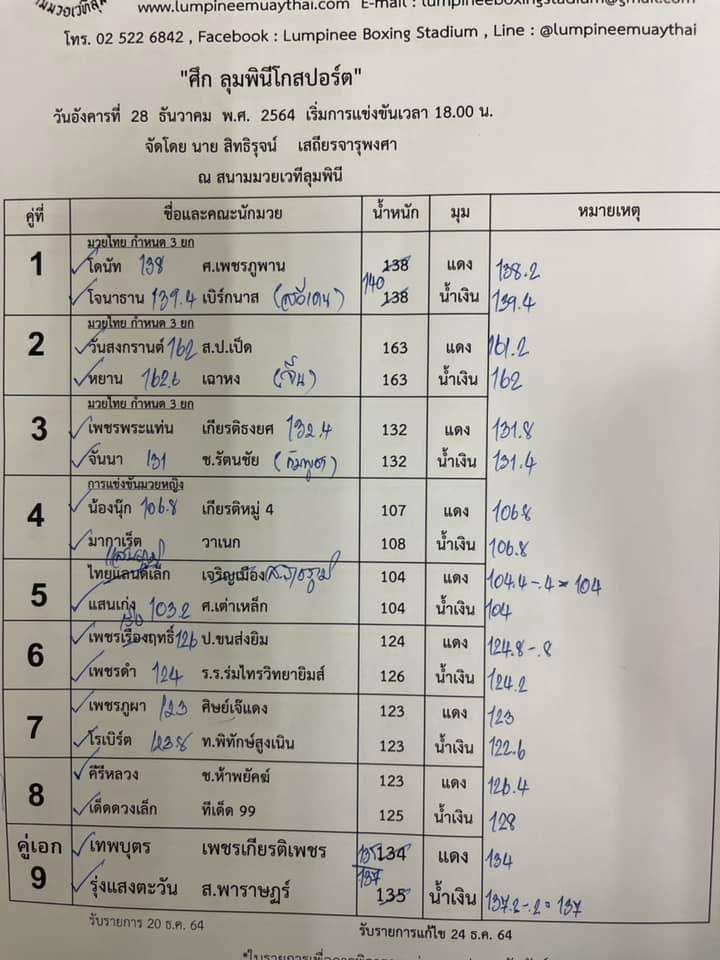 www.lumpineemuaythai.com E-mail : lumpineeboxingstadium@gmail.com
โทร. 02 522 6842 , Facebook : Lumpinee Boxing Stadium , Line : @lumpineemuaythai
"ศึก ลุมพินีโกสปอร์ต"
วันอังคารที่ 28 ธันวาคม พ.ศ. 2564 เริ่มการแข่งขันเวลา 18.00 น.
จัดโดย นาย สิทธิรุจน์ เสถียรจารุพงศา
ณ สนามมวยเวทีลุมพินี
คู่ที่ ชื่อและคณะนักมวย น้ำหนัก มุม หมายเหตุ
มวยไทย กำหนด 3 ยก
1 โดนัท 138 ศ.เพชรภูพาน 138 แดง 138.2
โจนาธาน 139.4 เบิร์กนาส (สวีเดน) 140 138 น้ำเงิน 139.4
มวยไทย กำหนด 3 ยก
2 วันสงกรานต์ 162 ส.ป.เป็ด 163 แดง 161.2
หยาน 162.6 เฉาหง (จีน) 163 น้ำเงิน 162
มวยไทย กำหนด 3 ยก
3 เพชรพระแท่น เกียรติธงยศ 132.4 132 แดง 131.8
จันนา 131 ช.รัตนชัย (กัมพูชา) 132 น้ำเงิน 131.4
การแข่งขันมวยหญิง
4 น้องนุ๊ก 106.8 เกียรติหมู่ 4 107 แดง 106.8
มากาเร็ต วาเนก 108 น้ำเงิน 106.8
5 ไทยแลนด์เล็ก เจริญเมือง 104 แดง 104.4-.4 = 104
แสนเก่ง 103.2 ศ.เต่าเหล็ก 104 น้ำเงิน 104
6 เพชรเรืองฤทธิ์ 126 ป.ขนส่งยิม 124 แดง 124.8-.8
เพชรดำ 124 ร.ร.ร่มไทรวิทยายิมส์ 126 น้ำเงิน 124.2
7 เพชรภูผา 123 ศิษย์เจ๊แดง 123 แดง 123
โรเบิร์ต 123.8 ท.พิทักษ์สูงเนิน 123 น้ำเงิน 122.6
8 คีรีหลวง ช.ห้าพยัคฆ์ 123 แดง 126.4
เด็ดดวงเล็ก ทีเด็ด 99 125 น้ำเงิน 128
คู่เอก เทพบุตร เพชรเกียรติเพชร 135 134 แดง 134
9 รุ่งแสงตะวัน ส.พาราษฎร์ 137 135 น้ำเงิน 137.2-.2 = 137
รับรายการ 20 ธ.ค. 64 รับรายการแก้ไข 24 ธ.ค. 64